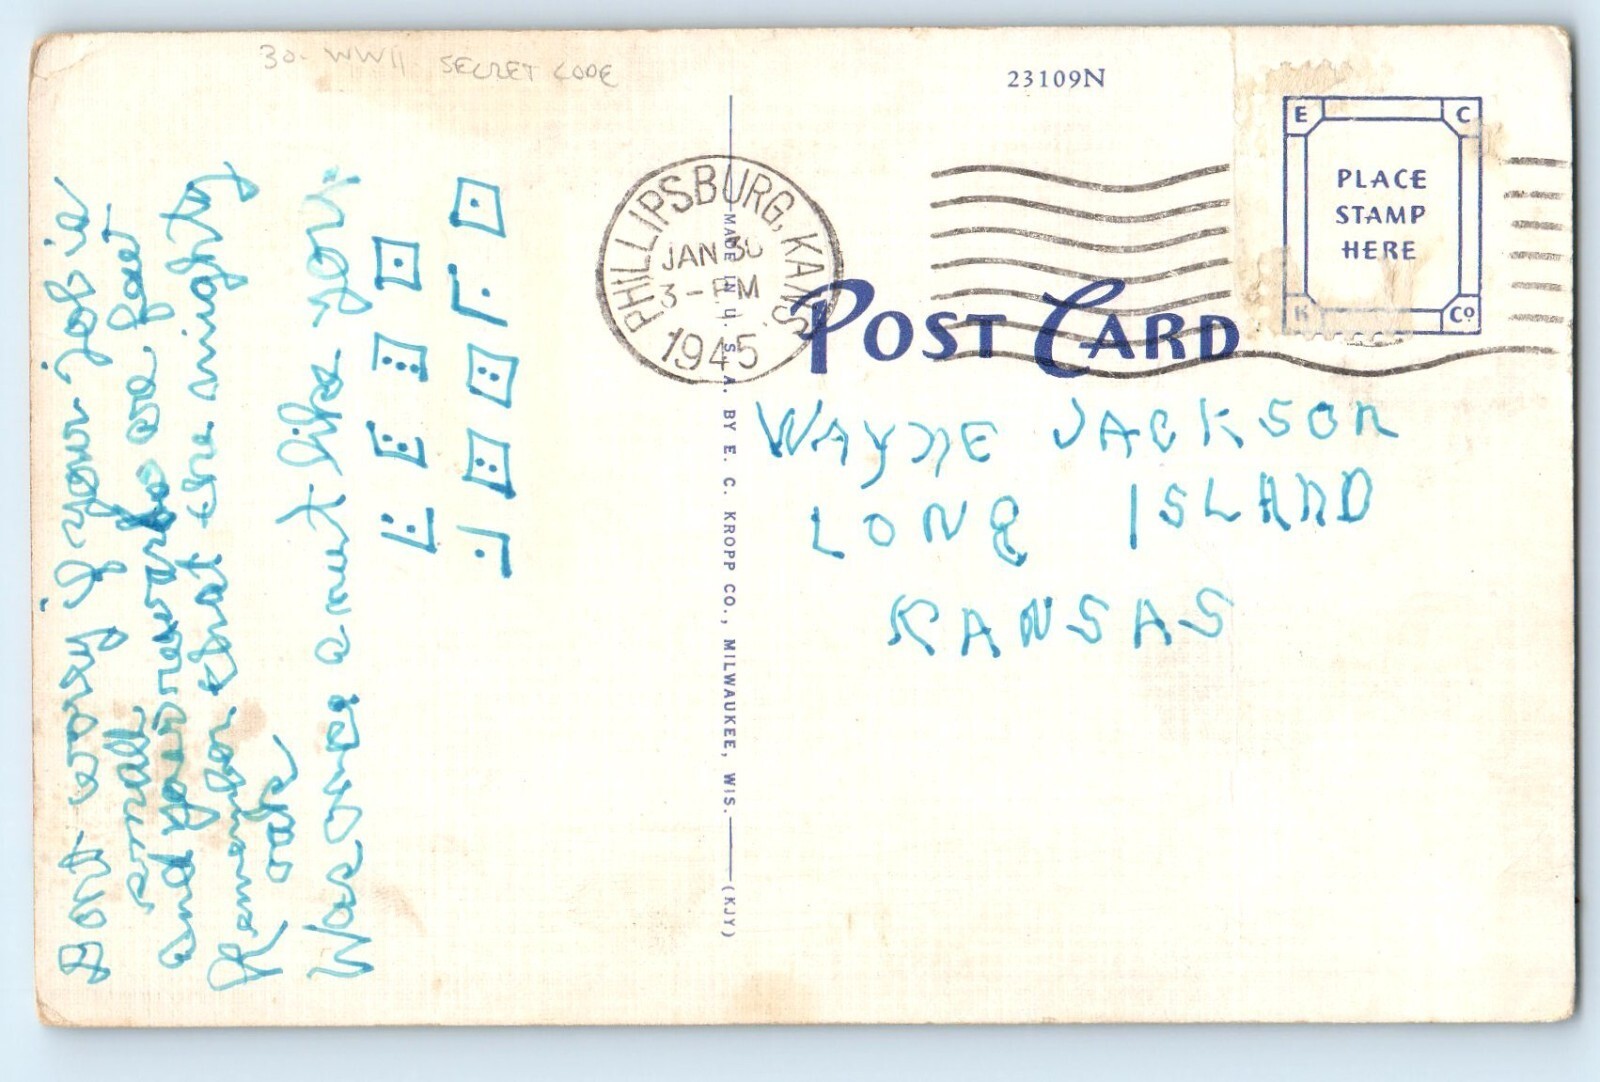 30- WWII SECRET CODE
23109N
E C
PLACE
STAMP
HERE
K Co
PHILLIPSBURG, KANS.
JAN 30
3-PM
1945
POST CARD
MADE IN U. S. A. BY E. C. KROPP CO., MILWAUKEE, WIS. (KJY)
WAYNE JACKSON
LONG ISLAND
KANSAS
Dont worry if your job is
small
and your rewards are few
Remember that the mighty
oak
Was once a nut like you.